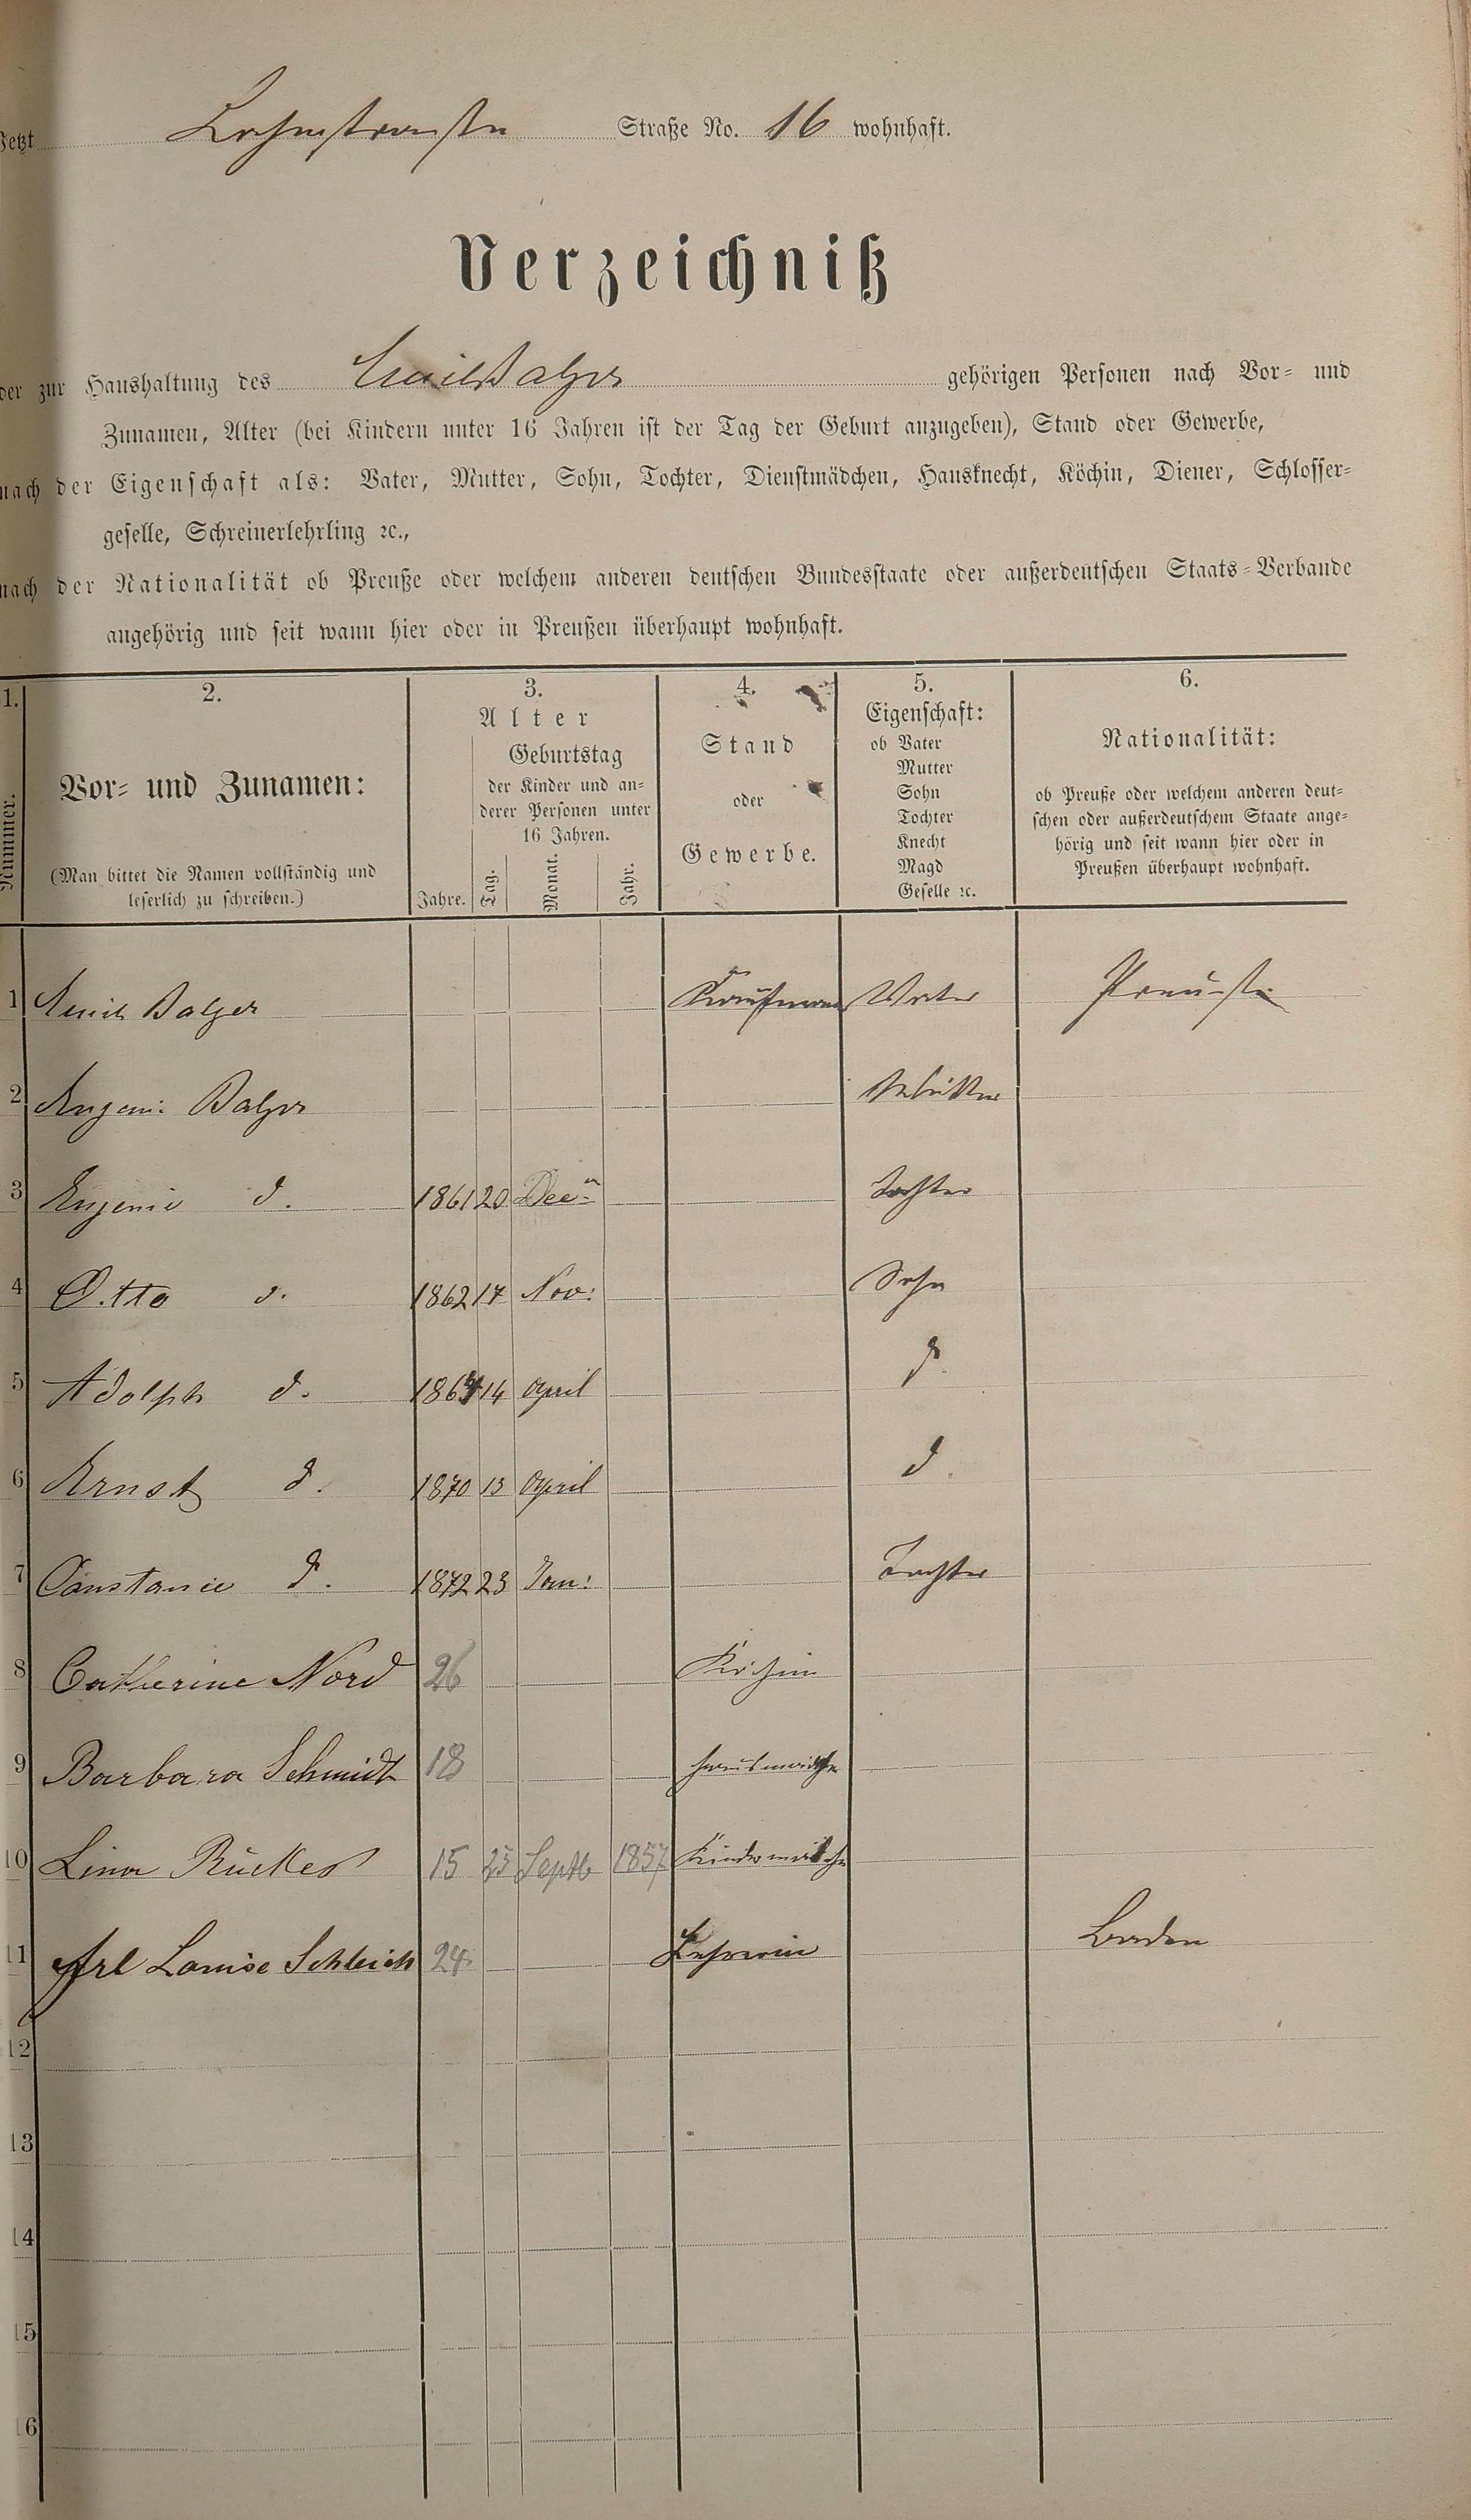 Jetzt Lahnstraße Straße No. 16 wohnhaft.
Verzeichniß
der zur Haushaltung des Emil Balzer gehörigen Personen nach Vor- und
Zunamen, Alter (bei Kindern unter 16 Jahren ist der Tag der Geburt anzugeben), Stand oder Gewerbe,
nach der Eigenschaft als: Vater, Mutter, Sohn, Tochter, Dienstmädchen, Hausknecht, Köchin, Diener, Schlosser-
geselle, Schreinerlehrling ꝛc.,
nach der Nationalität ob Preuße oder welchem anderen deutschen Bundesstaate oder außerdeutschen Staats-Verbande
angehörig und seit wann hier oder in Preußen überhaupt wohnhaft.
1. 2. 3. 4. 5. 6.
Nummer.
Vor- und Zunamen:
(Man bittet die Namen vollständig und
leserlich zu schreiben.)
Alter
Jahre.
Geburtstag
der Kinder und an-
derer Personen unter
16 Jahren.
Tag. Monat. Jahr.
Stand
oder
Gewerbe.
Eigenschaft:
ob Vater
Mutter
Sohn
Tochter
Knecht
Magd
Geselle ꝛc.
Nationalität:
ob Preuße oder welchem anderen deut-
schen oder außerdeutschem Staate ange-
hörig und seit wann hier oder in
Preußen überhaupt wohnhaft.
1 Emil Balzer Kaufmann Vater Preuße
2 Eugenie Balzer Mutter
3 Eugenie d. 1861 20 Decr Tochter
4 Otto d. 1862 17 Nov: Sohn
5 Adolph d. 1864 14 April d.
6 Ernst d. 1870 13 April d.
7 Constancie d. 1872 23 Jan: Tochter
8 Catherine Nord 26 Köchin
9 Barbara Schmidt 18 Hausmädchen
10 Lina Rückes 15 25 Septb 1857 Kindermädchen
11 Frl Louise Schleich 24 Lehrerin Baden
12
13
14
15
16